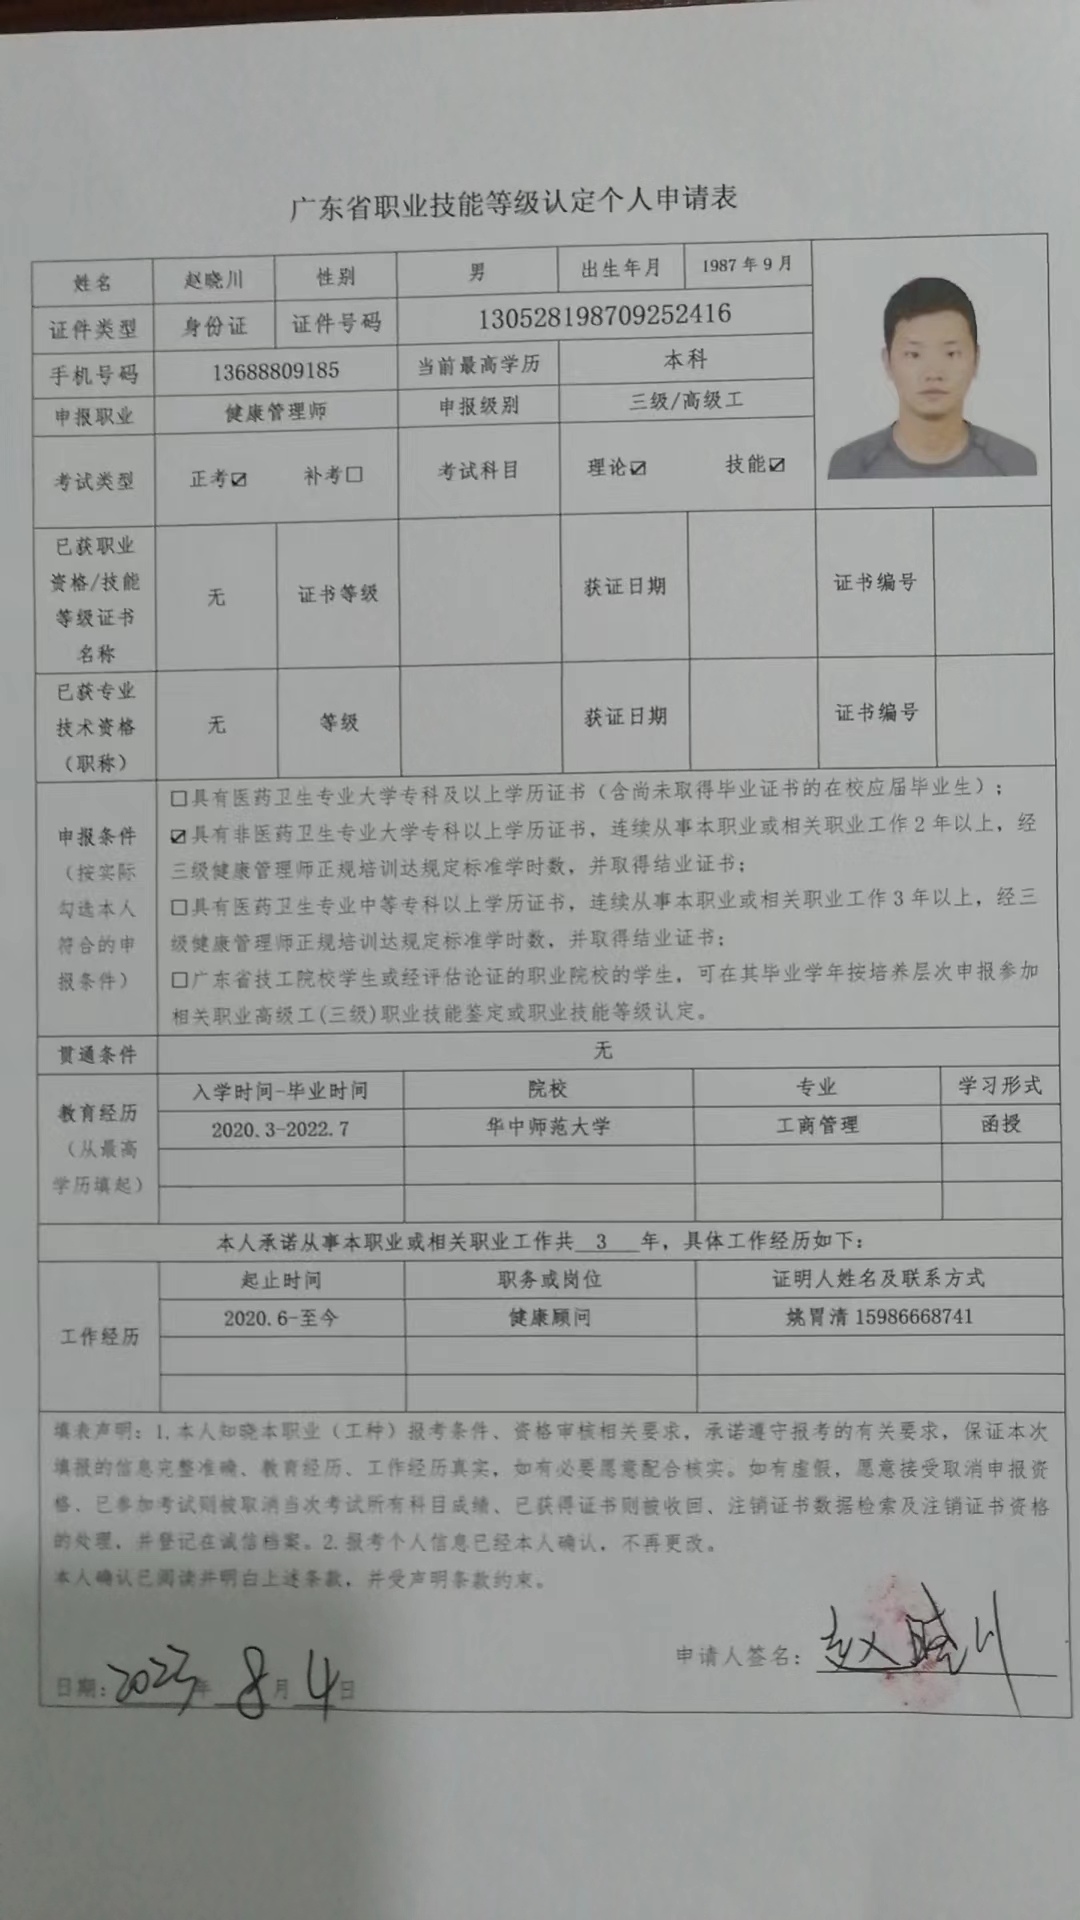 广东省职业技能等级认定个人申请表
姓名 赵晓川 性别 男 出生年月 1987年9月
证件类型 身份证 证件号码 130528198709252416
手机号码 13688809185 当前最高学历 本科
申报职业 健康管理师 申报级别 三级/高级工
考试类型 正考☑ 补考☐ 考试科目 理论☑ 技能☑
已获职业
资格/技能
等级证书
名称
无 证书等级 获证日期 证书编号
已获专业
技术资格
（职称）
无 等级 获证日期 证书编号
申报条件
（按实际
勾选本人
符合的申
报条件）
☐具有医药卫生专业大学专科及以上学历证书（含尚未取得毕业证书的在校应届毕业生）；
☑具有非医药卫生专业大学专科以上学历证书，连续从事本职业或相关职业工作2年以上，经
三级健康管理师正规培训达规定标准学时数，并取得结业证书；
☐具有医药卫生专业中等专科以上学历证书，连续从事本职业或相关职业工作3年以上，经三
级健康管理师正规培训达规定标准学时数，并取得结业证书；
☐广东省技工院校学生或经评估论证的职业院校的学生，可在其毕业学年按培养层次申报参加
相关职业高级工(三级)职业技能鉴定或职业技能等级认定。
贯通条件 无
教育经历
（从最高
学历填起）
入学时间-毕业时间 院校 专业 学习形式
2020.3-2022.7 华中师范大学 工商管理 函授
本人承诺从事本职业或相关职业工作共 3 年，具体工作经历如下：
工作经历
起止时间 职务或岗位 证明人姓名及联系方式
2020.6-至今 健康顾问 姚胃清 15986668741
填表声明：1.本人知晓本职业（工种）报考条件、资格审核相关要求，承诺遵守报考的有关要求，保证本次
填报的信息完整准确、教育经历、工作经历真实，如有必要愿意配合核实。如有虚假，愿意接受取消申报资
格、已参加考试则被取消当次考试所有科目成绩、已获得证书则被收回、注销证书数据检索及注销证书资格
的处理，并登记在诚信档案。2.报考个人信息已经本人确认，不再更改。
本人确认已阅读并明白上述条款，并受声明条款约束。
申请人签名：赵晓川
日期：2023年8月4日